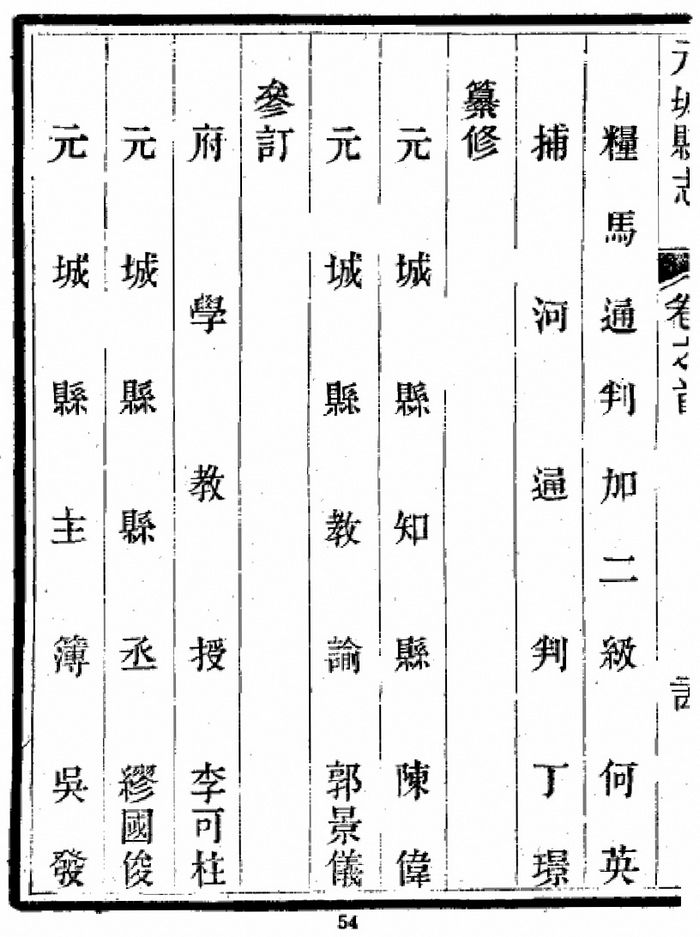 元城縣志 卷之首
糧馬通判加二級何英
捕河通判丁璟
纂修
元城縣知縣陳偉
元城縣教諭郭景儀
參訂
府學教授李可柱
元城縣縣丞繆國俊
元城縣主簿吳發
54